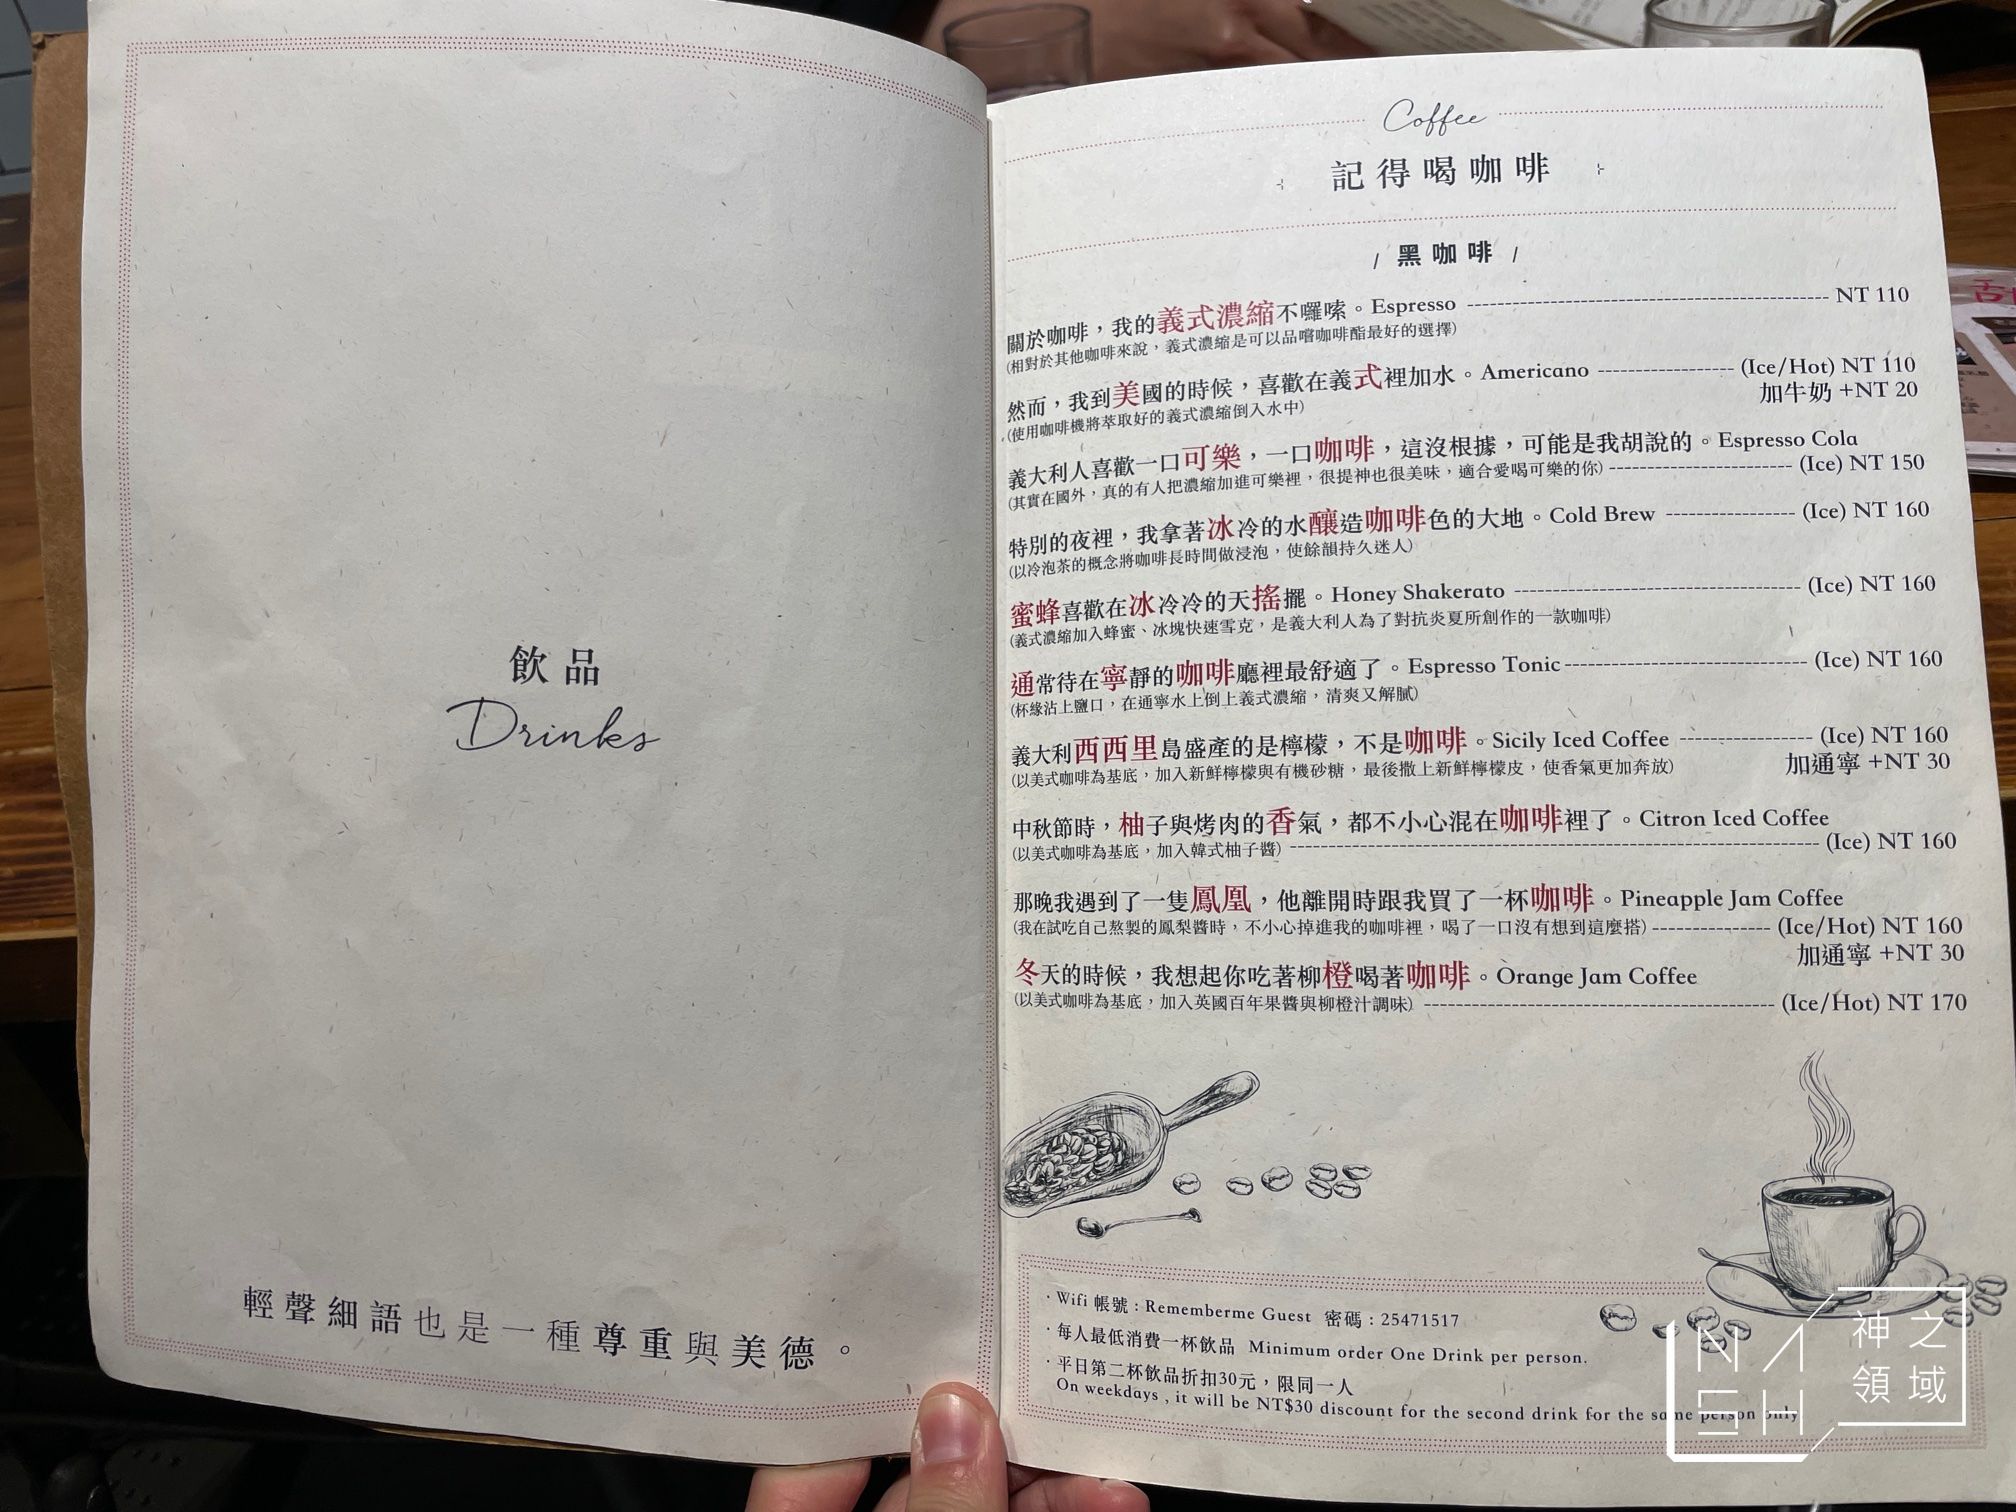 飲品
Drinks
輕聲細語也是一種尊重與美德。
Coffee
記得喝咖啡
/ 黑咖啡 /
關於咖啡，我的義式濃縮不囉嗦。Espresso ---- NT 110
(相對於其他咖啡來說，義式濃縮是可以品嚐咖啡酯最好的選擇)
然而，我到美國的時候，喜歡在義式裡加水。Americano ---- (Ice/Hot) NT 110
(使用咖啡機將萃取好的義式濃縮倒入水中) 加牛奶 +NT 20
義大利人喜歡一口可樂，一口咖啡，這沒根據，可能是我胡說的。Espresso Cola
(其實在國外，真的有人把濃縮加進可樂裡，很提神也很美味，適合愛喝可樂的你) ---- (Ice) NT 150
特別的夜裡，我拿著冰冷的水釀造咖啡色的大地。Cold Brew ---- (Ice) NT 160
(以冷泡茶的概念將咖啡長時間做浸泡，使餘韻持久迷人)
蜜蜂喜歡在冰冷冷的天搖擺。Honey Shakerato ---- (Ice) NT 160
(義式濃縮加入蜂蜜、冰塊快速雪克，是義大利人為了對抗炎夏所創作的一款咖啡)
通常待在寧靜的咖啡廳裡最舒適了。Espresso Tonic ---- (Ice) NT 160
(杯緣沾上鹽口，在通寧水上倒上義式濃縮，清爽又解膩)
義大利西西里島盛產的是檸檬，不是咖啡。Sicily Iced Coffee ---- (Ice) NT 160
(以美式咖啡為基底，加入新鮮檸檬與有機砂糖，最後撒上新鮮檸檬皮，使香氣更加奔放) 加通寧 +NT 30
中秋節時，柚子與烤肉的香氣，都不小心混在咖啡裡了。Citron Iced Coffee
(以美式咖啡為基底，加入韓式柚子醬) ---- (Ice) NT 160
那晚我遇到了一隻鳳凰，他離開時跟我買了一杯咖啡。Pineapple Jam Coffee
(我在試吃自己熬製的鳳梨醬時，不小心掉進我的咖啡裡，喝了一口沒有想到這麼搭) ---- (Ice/Hot) NT 160
加通寧 +NT 30
冬天的時候，我想起你吃著柳橙喝著咖啡。Orange Jam Coffee
(以美式咖啡為基底，加入英國百年果醬與柳橙汁調味) ---- (Ice/Hot) NT 170
· Wifi 帳號：Rememberme Guest 密碼：25471517
· 每人最低消費一杯飲品 Minimum order One Drink per person.
· 平日第二杯飲品折扣30元，限同一人
On weekdays , it will be NT$30 discount for the second drink for the same person only
NASH
神之
領域